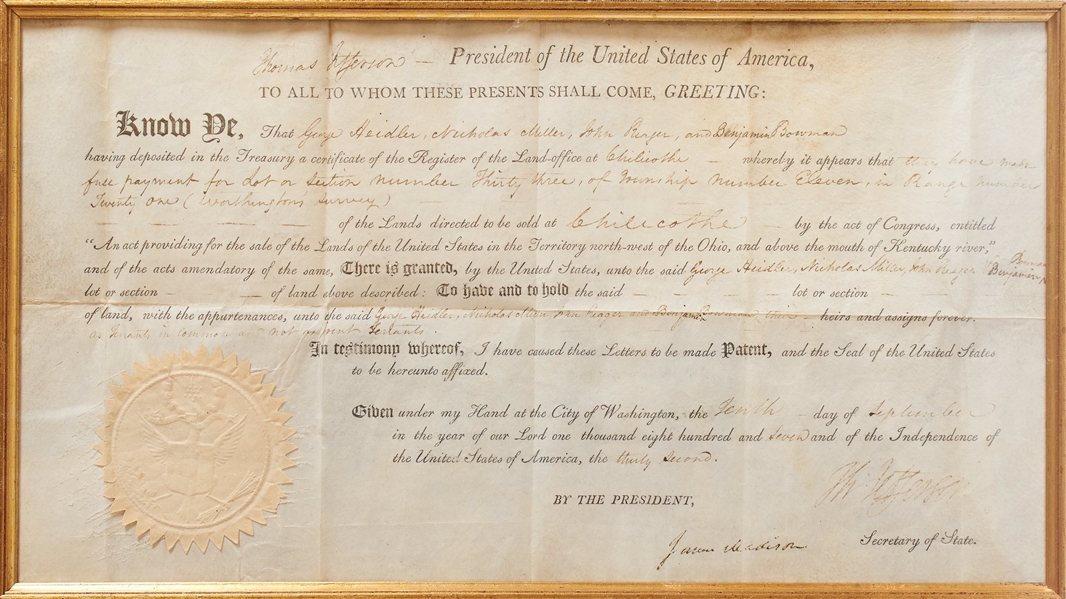 Thomas Jefferson — President of the United States of America,
TO ALL TO WHOM THESE PRESENTS SHALL COME, GREETING:
Know Ye, That George Heidler, Nicholas Miller, John Reager, and Benjamin Bowman
having deposited in the Treasury a certificate of the Register of the Land-office at Chilicothe — whereby it appears that they have made
full payment for Lot or Section number Thirty three, of Township number Eleven, in Range number
Twenty one (Worthingtons Survey)
of the Lands directed to be sold at Chilicothe — by the act of Congress, entitled
“An act providing for the sale of the Lands of the United States in the Territory north-west of the Ohio, and above the mouth of Kentucky river,”
and of the acts amendatory of the same, There is granted, by the United States, unto the said George Heidler, Nicholas Miller, John Reager Benjamin Bowman
lot or section — — of land above described: To have and to hold the said — — — — lot or section —
of land, with the appurtenances, unto the said George Heidler, Nicholas Miller John Reager and Benjamin Bowman their — heirs and assigns forever.
as Tenants in common and not as Tenants.
In testimony whereof, I have caused these Letters to be made Patent, and the Seal of the United States
to be hereunto affixed.
Given under my Hand at the City of Washington, the Tenth — day of September
in the year of our Lord one thousand eight hundred and seven and of the Independence of
the United States of America, the thirty second.
Th: Jefferson
BY THE PRESIDENT,
James Madison Secretary of State.